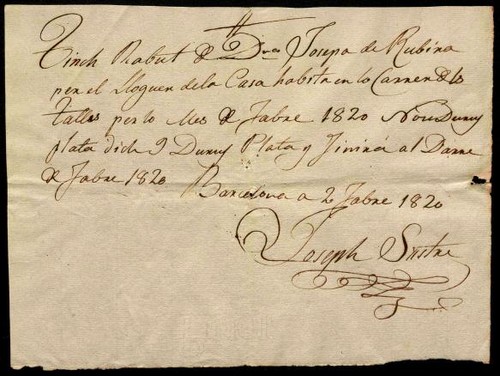 Tinch Rabut de Dna Josepa de Rubina
per el Lloguer de la Casa habita en lo Carrer de los
Tallés per lo Mes de Jabre 1820 Nou Duros
plata dich 9 Duros Plata y finirá al Darre
de Jabre 1820
Barcelona a 2 Jabre 1820
Joseph Sastre